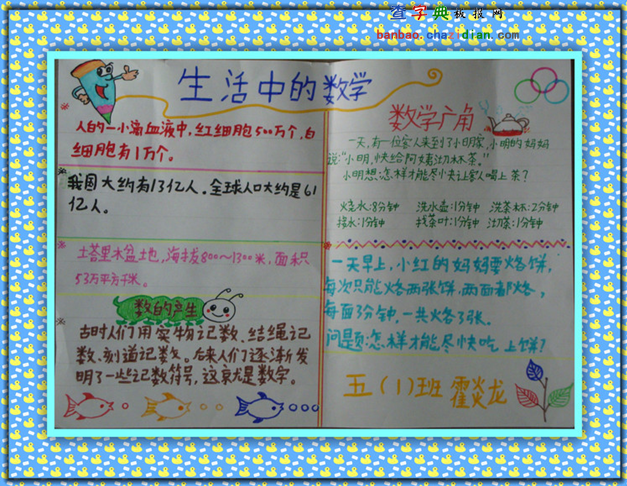 查字典板报网
banbao.chazidian.com
生活中的数学
人的一小滴血液中，红细胞500万个，白
细胞有1万个。
我国大约有13亿人。全球人口大约是61
亿人。
土塔里木盆地，海拔800～1300米，面积
53万平方千米。
数的产生
古时人们用实物记数、结绳记
数、刻道记数。后来人们逐渐发
明了一些记数符号，这就是数字。
数学广角
一天，有一位客人来到了小明家，小明的妈妈
说："小明，快给阿姨沏杯茶。"
小明想：怎样才能尽快让客人喝上茶？
烧水：8分钟 洗水壶：1分钟 洗茶杯：2分钟
接水：1分钟 找茶叶：1分钟 沏茶：1分钟
一天早上，小红的妈妈要烙饼，
每次只能烙两张饼，两面都烙，
每面3分钟，一共烙3张。
问题：怎样才能尽快吃上饼？
五（1）班 霍炎龙